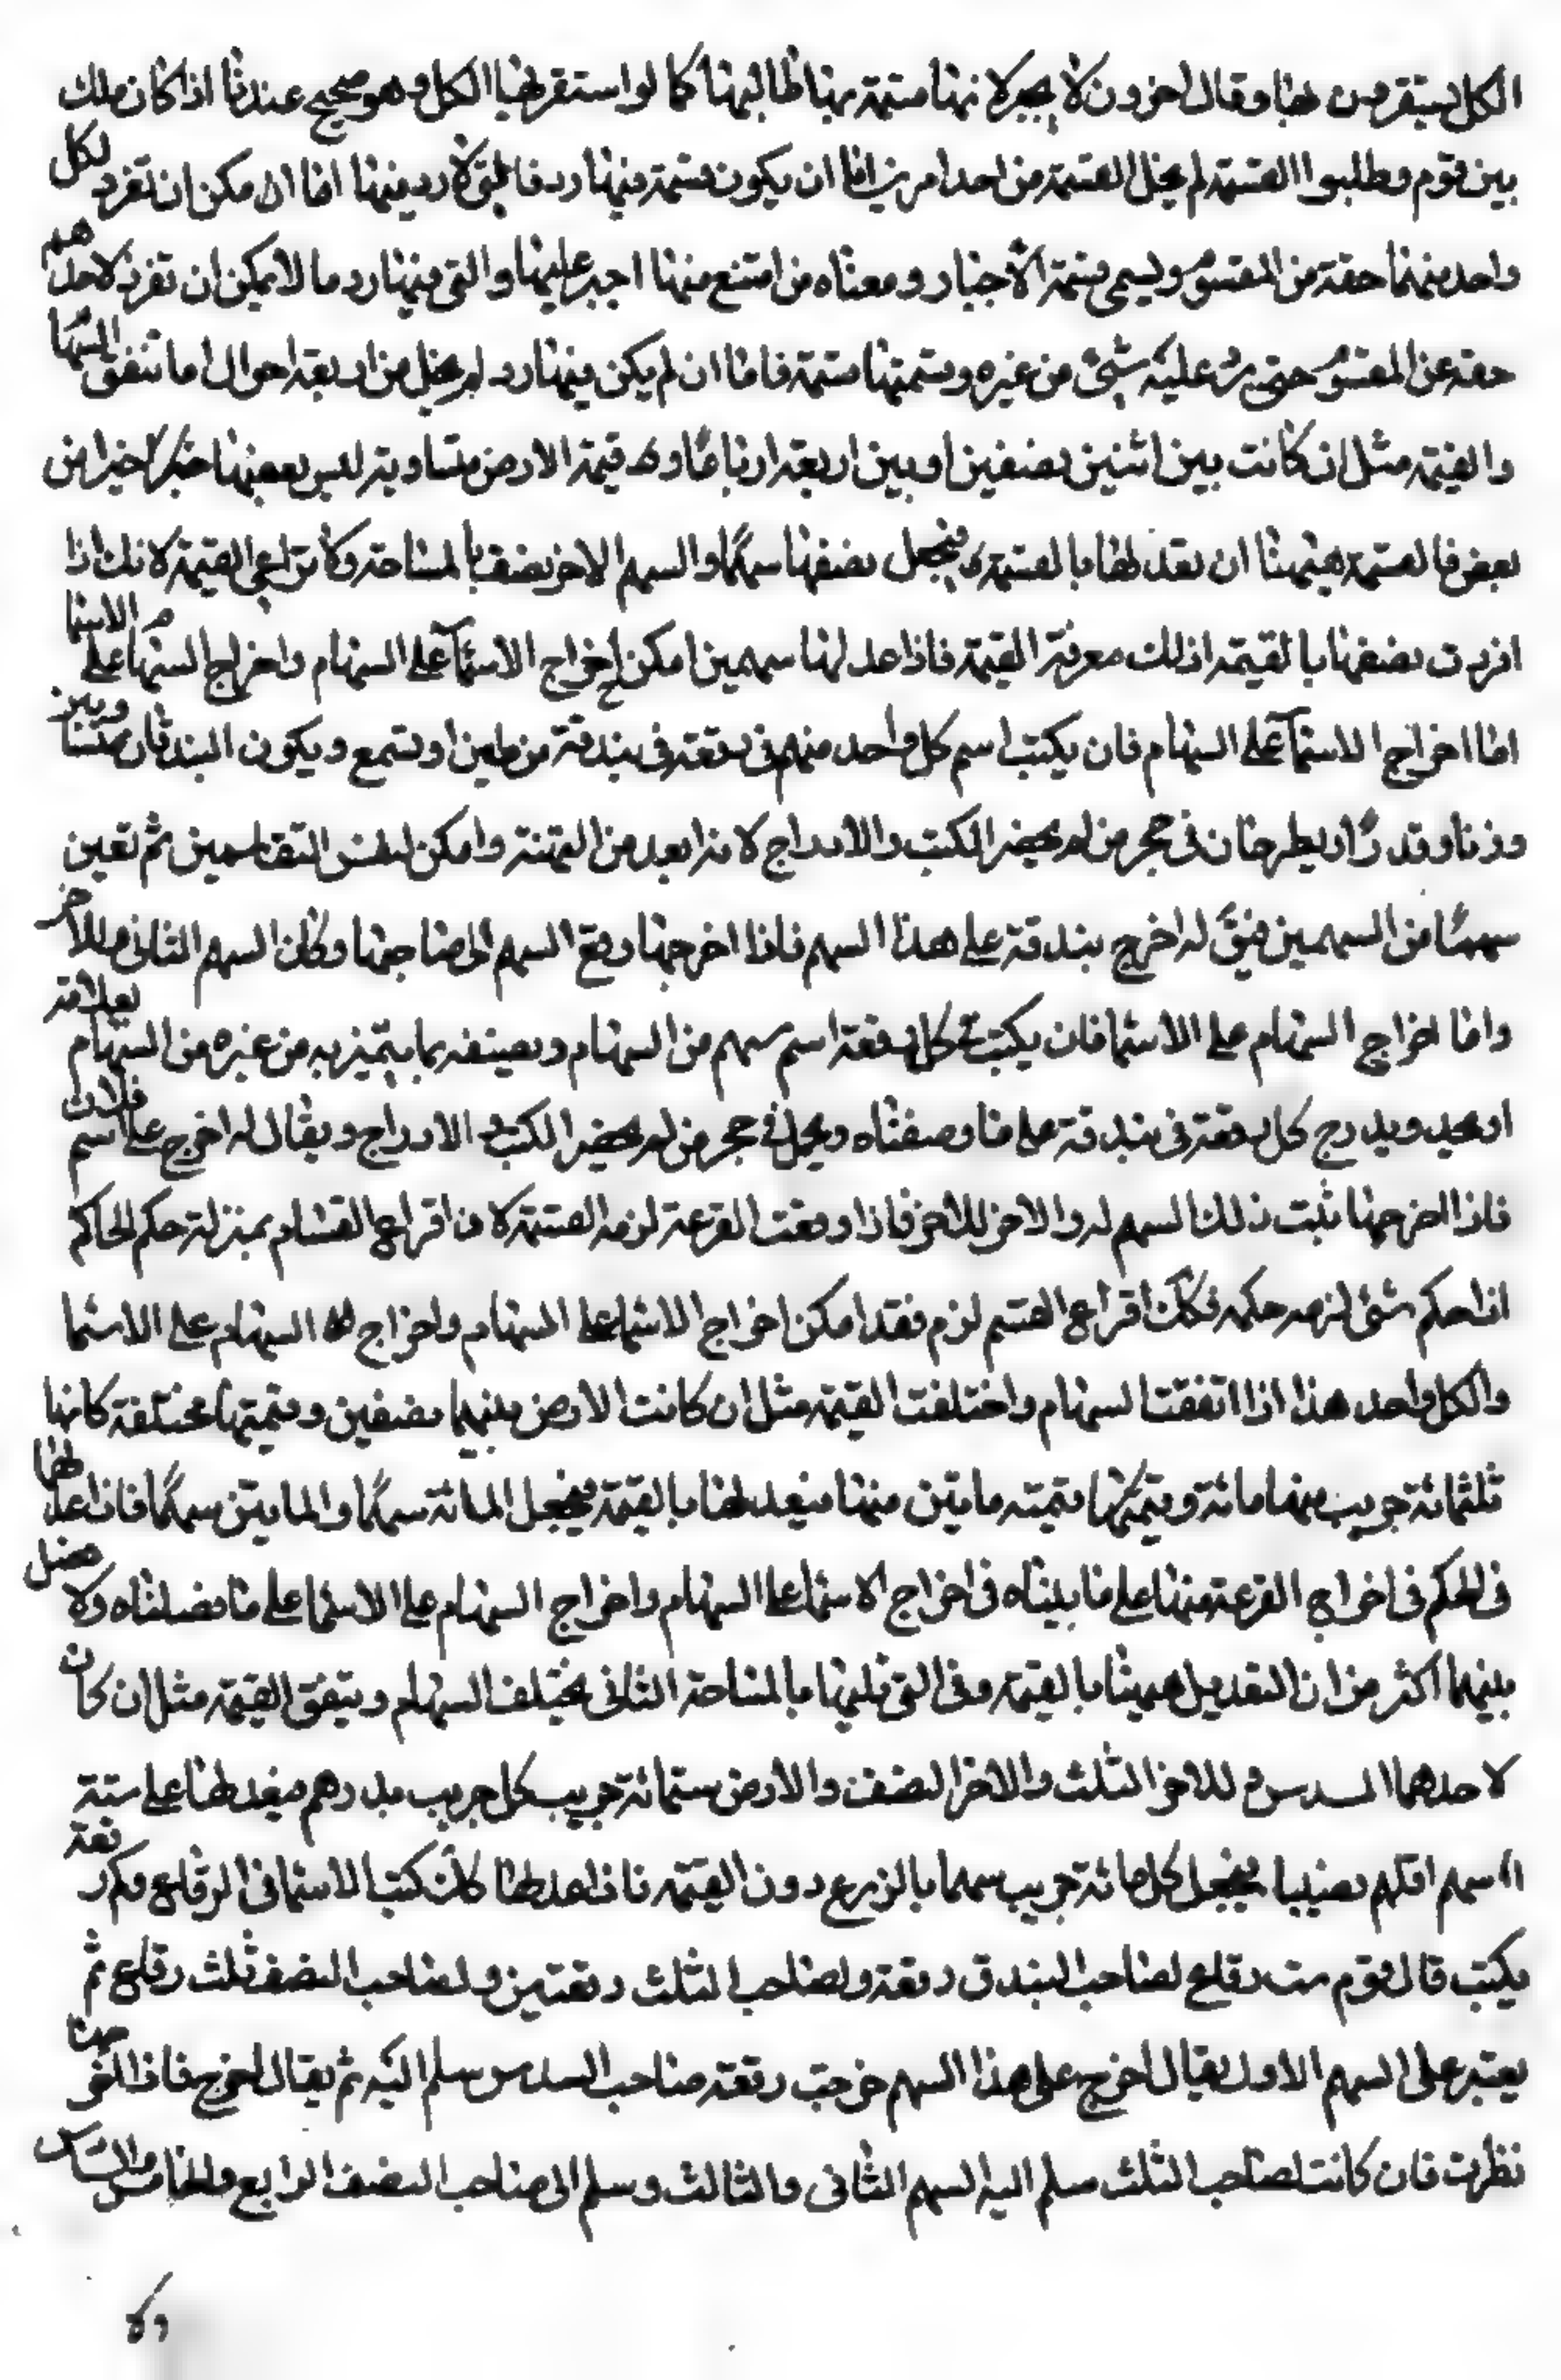 الكل يستقر من بها وقال اخرون لا يجبر لانها مستمة بها طالبها كما لو استقر بها الكل وهو صحيح عندنا اذا كان ملك
بين قوم وطلبوا القسمة لم يخل القسمة من احد امرين اما ان يكون قسمة فيها رد فالتي لا رد فيها اما ان يمكن ان تفرد لكل
واحد منهما حقه من المقسوم ويسمى قسمة الاجبار ومعناه من امتنع منها اجبر عليها والتي فيها رد ما لا يمكن ان تفرد لاحدهم
حقه عن المقسوم حتى يرد عليه شئ من غيره وقسمتها قسمة فاما ان لم يكن فيها رد لم يخل من اربعة احوال اما تتفق السهام
والقيمة مثل ان كانت بين اثنين نصفين او بين اربعة ارباعا وى قيمة الارض متساوية ليس بعضها خيرا من
بعض فالقسمة ههنا ان تعدلها بالقسمة فيجعل نصفها سهما والسهم الاخر نصفها بالمساحة ولا تراعى القيمة لانك اذا
افردت نصفها بالقيمة اذلك معرفة القيمة فاذا عدلها سهمين امكن اخراج الاسماء على السهام واخراج السهام على الاسما
اما اخراج الاسماء على السهام فان يكتب اسم كل واحد منهم فى رقعة فى بندقة من طين او شمع ويكون البندقتان متساويين
وزنا وقدرا ويطرحان فى حجر من لم يحضر الكتب والادراج لانه ابعد من التهمة وامكن لنفس المتقاسمين ثم تعين
سهما من السهمين فيق له اخرج بندقة على هذا السهم فاذا اخرجها دفع السهم الى صاحبها وكان السهم الثانى للاخر
واما اخراج السهام على الاسما فان يكتب فى كل رقعة اسم سهم من السهام ويصفه بما يتميز به من غيره من السهام بعلامة
او بحد ويدرج كل رقعة فى بندقة على ما وصفناه ويجعل فى حجر من لم يحضر الكتب و الادراج ويقال له اخرج على اسم فلان
فاذا اخرجها ثبت ذلك السهم له والاخر للاخر فاذا وقعت القرعة لزمه القسمة لان اقراع القسام بمنزلة حكم الحاكم
اذا حكم بشئ لزمه حكمه فكك اقراع القسم لزم فقد امكن اخراج الاسما على السهام واخراج السهام على الاسما
والكل واحد هذا اذا اتفقت السهام واختلفت القيمة مثل ان كانت الارض بينهما نصفين وقيمتها مختلفة كانها
ثلثمائة جريب منها مائة وقيمتها قيمته مايتين منها فيعدلها بالقيمة فيجعل المائة سهما والمايتين سهما فاذا عدلها
فى الحكم فى اخراج القرعة منها على ما بيناه فى اخراج الاسما على السهام واخراج السهام على الاسما على ما فصلناه ولا فصل
بينهما اكثر من ان التعديل ههنا بالقيمة وفى التى تليها بالمساحة الثانى يختلف السهام ويتفق القيمة مثل ان كان
لاحدهما السدس و للاخر الثلث والاخر النصف والارض ستمائة جريب كل جريب بدرهم فيعدلها على ستة
سهم اقلهم نصيبا فيجعل كل مائة جريب سهما بالزرع دون القيمة فاذا عدلها كك كتب الاسما فى الرقاع وكم رقعة
يكتب قال قوم ست رقاع لصاحب البندق رقعة ولصاحب الثلث رقعتين ولصاحب النصف ثلث رقاع ثم
يعتبر على السهم الاول يقال اخرج على هذا السهم خرجت رقعة صاحب السدس سلم اليه ثم يقال اخرج فاذا اخرجها
نظرت فان كانت لصاحب الثلث سلم اليه السهم الثانى والثالث وسلم الى صاحب النصف الرابع والخامس والسادس